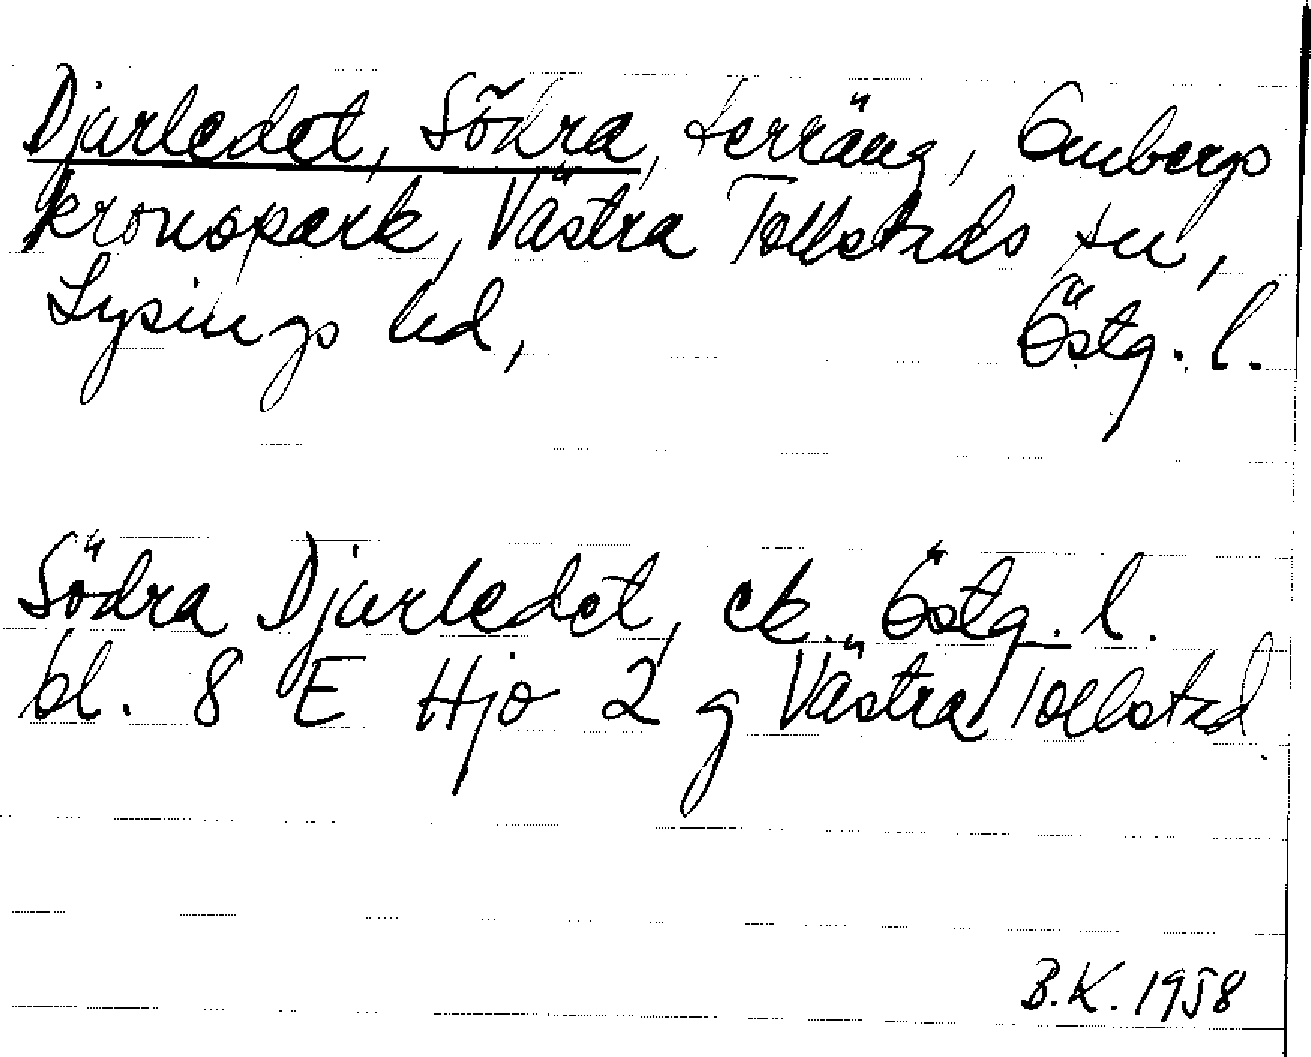 Djurledet, Södra, terräng, Ombergs
kronopark, Västra Tollstads sn,
Lysings hd, Östg. l.
Södra Djurledet, ek. Östg. l.
bl. 8 E Hjo 2 g Västra Tollstad
B.K. 1958